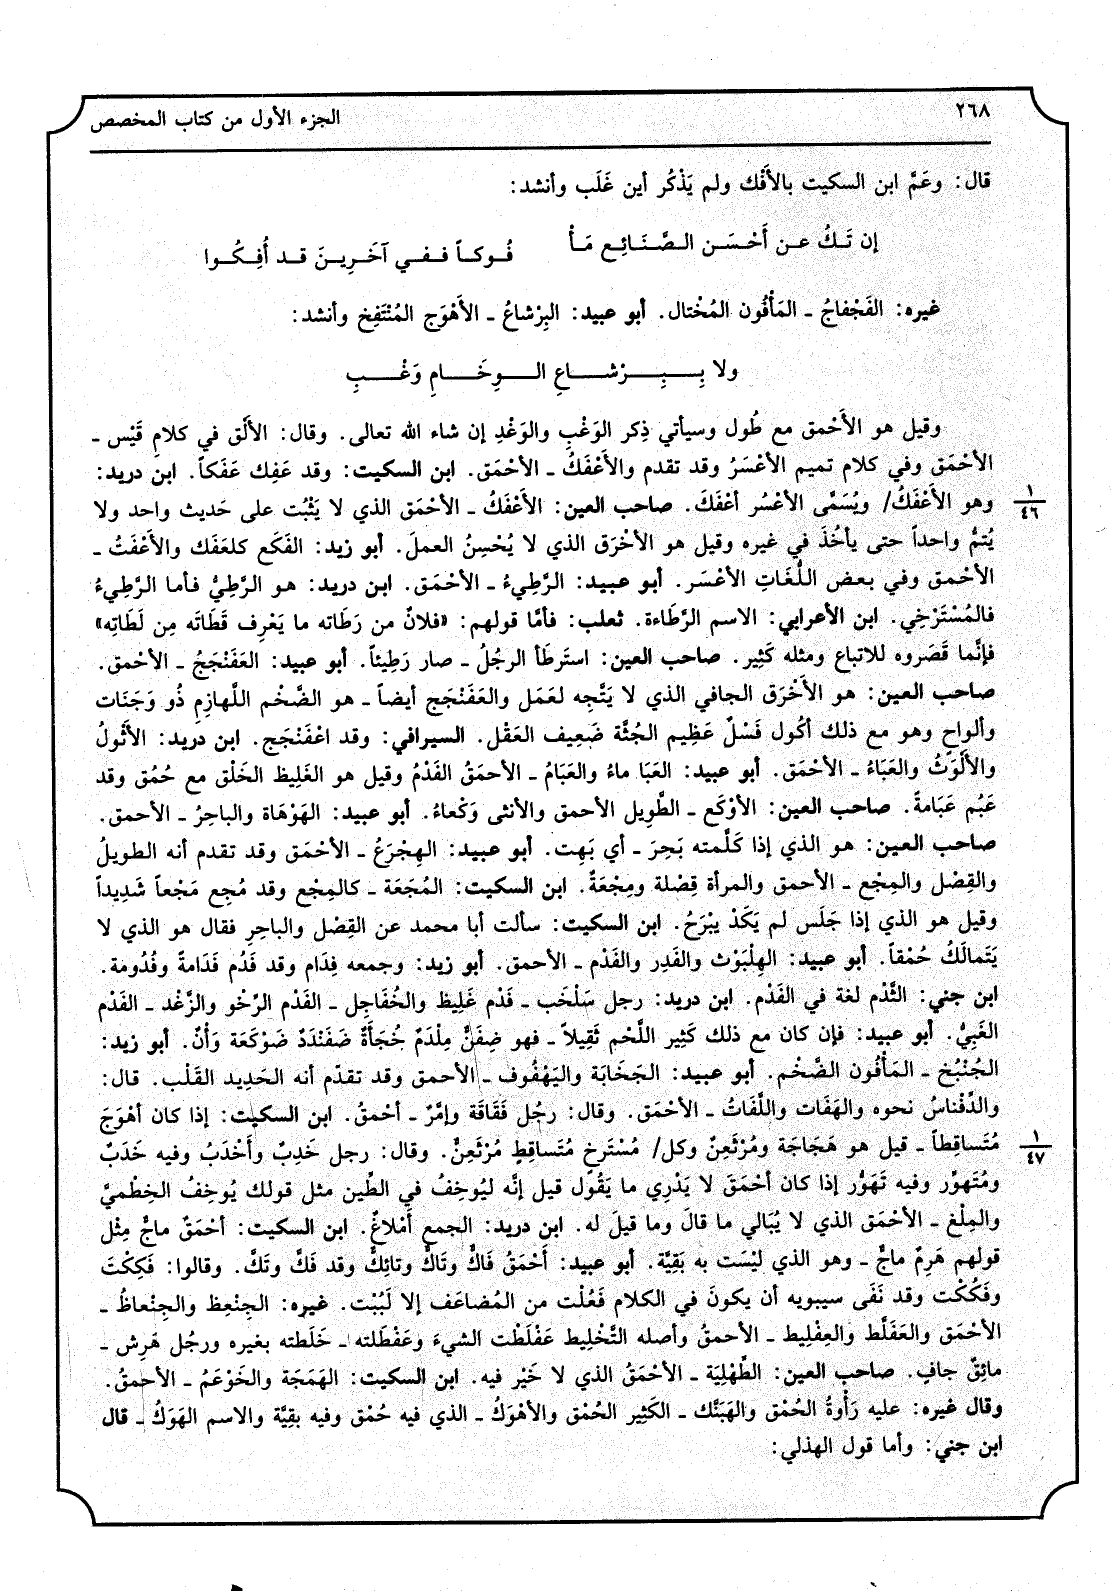 ٢٦٨
الجزء الأول من كتاب المخصص
قال: وعَمَّ ابن السكيت بالأَفْك ولم يَذْكُر أين غَلَب وأنشد:
إن تَـكُ عـن أَحْـسَـن الـصَّـنَـائِـع مَـأْ فُـوكـاً فـفـي آخَـرِيـنَ قـد أُفِـكُـوا
غيره: الفَجْفاجُ ـ المَأْفُون المُخْتال. أبو عبيد: البِرْشاعُ ـ الأَهْوَج المُنْتَفِخ وأنشد:
ولا بِـــبِـــرْشـــاعِ الـــوِخَـــامِ وَغْـــبِ
وقيل هو الأَحْمق مع طُول وسيأتي ذِكر الوَغْبِ والوَغْدِ إن شاء الله تعالى. وقال: الألَق في كلامِ قَيْس ـ
الأحْمَق وفي كلام تميم الأعْسَرُ وقد تقدم والأَعْفَكُ ـ الأحْمَق. ابن السكيت: وقد عَفِك عَفَكاً. ابن دريد:
وهو الأَعْفَكُ/ ويُسَمَّى الأعْسُر أعْفَكَ. صاحب العين: الأَعْفَكُ ـ الأحْمَق الذي لا يَثْبُت على حَديث واحد ولا
١
٤٦
يُتمُّ واحداً حتى يأخُذَ في غيره وقيل هو الأخْرَق الذي لا يُحْسِنُ العملَ. أبو زيد: الفَكَع كلعَفَك والأَعْفَتُ ـ
الأحْمـق وفي بـعـض اللُّغَاتِ الأعْسَر. أبو عبيد: الرَّطِيءُ ـ الأحْمَق. ابن دريد: هـو الرَّطِيُّ فأما الرَّطِيءُ
فالمُسْتَرْخِي. ابن الأعرابي: الاسم الرَّطَاءة. ثعلب: فأمَّا قولهم: «فلانٌ من رَطَاته ما يَعْرِف قَطَاتَه مِن لَطَاتِه»
فإنَّما قَصَروه للاتباع ومثله كَثِير. صاحب العين: استَرطَأ الرجُلُ ـ صار رَطِيئاً. أبو عبيد: العَفَنْجَجُ ـ الأحْمق.
صاحب العين: هو الأَخْرَق الجافي الذي لا يَتَّجِه لعَمَل والعَفَنْجَج أيضاً ـ هو الضَّخْم اللَّهازِمِ ذُو وَجَنَات
وألواحٍ وهو مع ذلك أكُول فَسْلٌ عَظِيم الجُثَّة ضَعِيف العَقْل. السيرافي: وقد اعْفَنْجَج. ابن دريد: الأَثْولُ
والأَلْوَثُ والعَبَاءُ ـ الأحْمَق. أبو عبيد: العَبَا ماءُ والعَبَامُ ـ الأحمَقُ الفَدْمُ وقيل هو الغَلِيظ الخَلْق مع حُمُق وقد
عَبُم عَبَامةً. صاحب العين: الأوْكَع ـ الطَّوِيل الأحمق والأنثى وَكْعاءُ. أبو عبيد: الهَوْهَاة والباحِرُ ـ الأحمق.
صاحب العين: هو الذي إذا كَلَّمته بَحِرَ ـ أي بَهِت. أبو عبيد: الهِجْرَعُ ـ الأحْمَق وقد تقدم أنه الطويلُ
والقِصْل والمِجْع ـ الأحمق والمرأة قِصْلة ومِجْعَةٌ. ابن السكيت: المُجَعَة ـ كالمِجْع وقد مُجِع مَجْعاً شَدِيداً
وقيل هو الذي إذا جَلَس لم يَكَدْ يبْرَحُ. ابن السكيت: سألت أبا محمد عن القِصْل والباحِرِ فقال هو الذي لا
يَتَمالَكُ حُمْقاً. أبو عبيد: الهِلْبَوْث والفَدِر والفَدْم ـ الأحمق. أبو زيد: وجمعه فِدَام وقد فَدُم فَدَامةً وفُدُومة.
ابن جني: الثَّدْم لغة في الفَدْم. ابن دريد: رجل سَلْخَب ـ فَدْم غَلِيظ والخُفَاجِل ـ الفَدْم الرِّخْو والزَّغْد ـ الفَدْم
الغَبِيُّ. أبو عبيد: فإن كان مع ذلك كَثِير اللَّحْم ثَقِيلاً ـ فهو ضِفَنٌّ مِلْدَمٌ خُجَأَةٌ ضَفَنْدَدٌ ضَوْكَعَة وَأْنٌ. أبو زيد:
الجُنْبُخ ـ المَأْفُون الضَّخْم. أبو عبيد: الجَخَابَة واليَهْفُوف ـ الأحمق وقد تقدّم أنه الحَدِيد القَلْب. قال:
والدِّفْناسُ نحوه والهَفَات واللَّفَاتُ ـ الأحْمَق. وقال: رجُل فَقَاقَة وإمَّرٌ ـ أحْمقُ. ابن السكيت: إذا كان أهْوَجَ
مُتَساقِطاً ـ قيل هو هَجَاجَة ومُرْثَعِنّ وكل/ مُسْتَرخٍ مُتَساقِطٍ مُرْثَعِنٌّ. وقال: رجل خَدِبٌ وأَخْدَبُ وفيه خَدَبٌ
١
٤٧
ومُتَهوِّر وفيه تَهَوُّر إذا كان أحْمَقَ لا يَدْرِي ما يَقُول قيل إنَّه ليُوخِفُ في الطِّين مثل قولك يُوخِفُ الخِطْميَّ
والمِلْغ ـ الأحْمَق الذي لا يُبَالي ما قالَ وما قيلَ له. ابن دريد: الجمع أَمْلاغٌ. ابن السكيت: أحْمَقٌ ماجٌّ مِثْل
قولهم هَرِمٌ ماجٌّ ـ وهو الذي ليْسَت به بَقِيَّة. أبو عبيد: أَحْمَقُ فَاكٌّ وَتَاكٌّ وتائِكٌّ وقد فَكَّ وتَكَّ. وقالوا: فَكِكْتَ
وفَكُكْت وقد نَفَى سيبويه أن يكونَ في الكلام فَعُلْت من المُضاعَف إلا لَبُبْت. غيره: الجِنْعِظ والجِنْعاظُ ـ
الأحْمَق والعَفَلَّط والعِفْلِيط ـ الأحمقُ وأصله التَّخْلِيط عَفْلَطْت الشيءَ وعَفْطَلته ـ خَلَطته بغيره ورجُل هَرِش ـ
مائِقٌ جافٍ. صاحب العين: الطِّهْلِيَة ـ الأحْمَقُ الذي لا خَيْر فيه. ابن السكيت: الهَمَجَة والخَوْعَمُ ـ الأحمقُ.
وقال غيره: عليه رَأْوةُ الحُمْق والهَبَنَّك ـ الكَثِير الحُمْق والأهْوَكُ ـ الذي فيه حُمْق وفيه بقِيَّة والاسم الهَوَكُ ـ قال
ابن جني: وأما قول الهذلي: